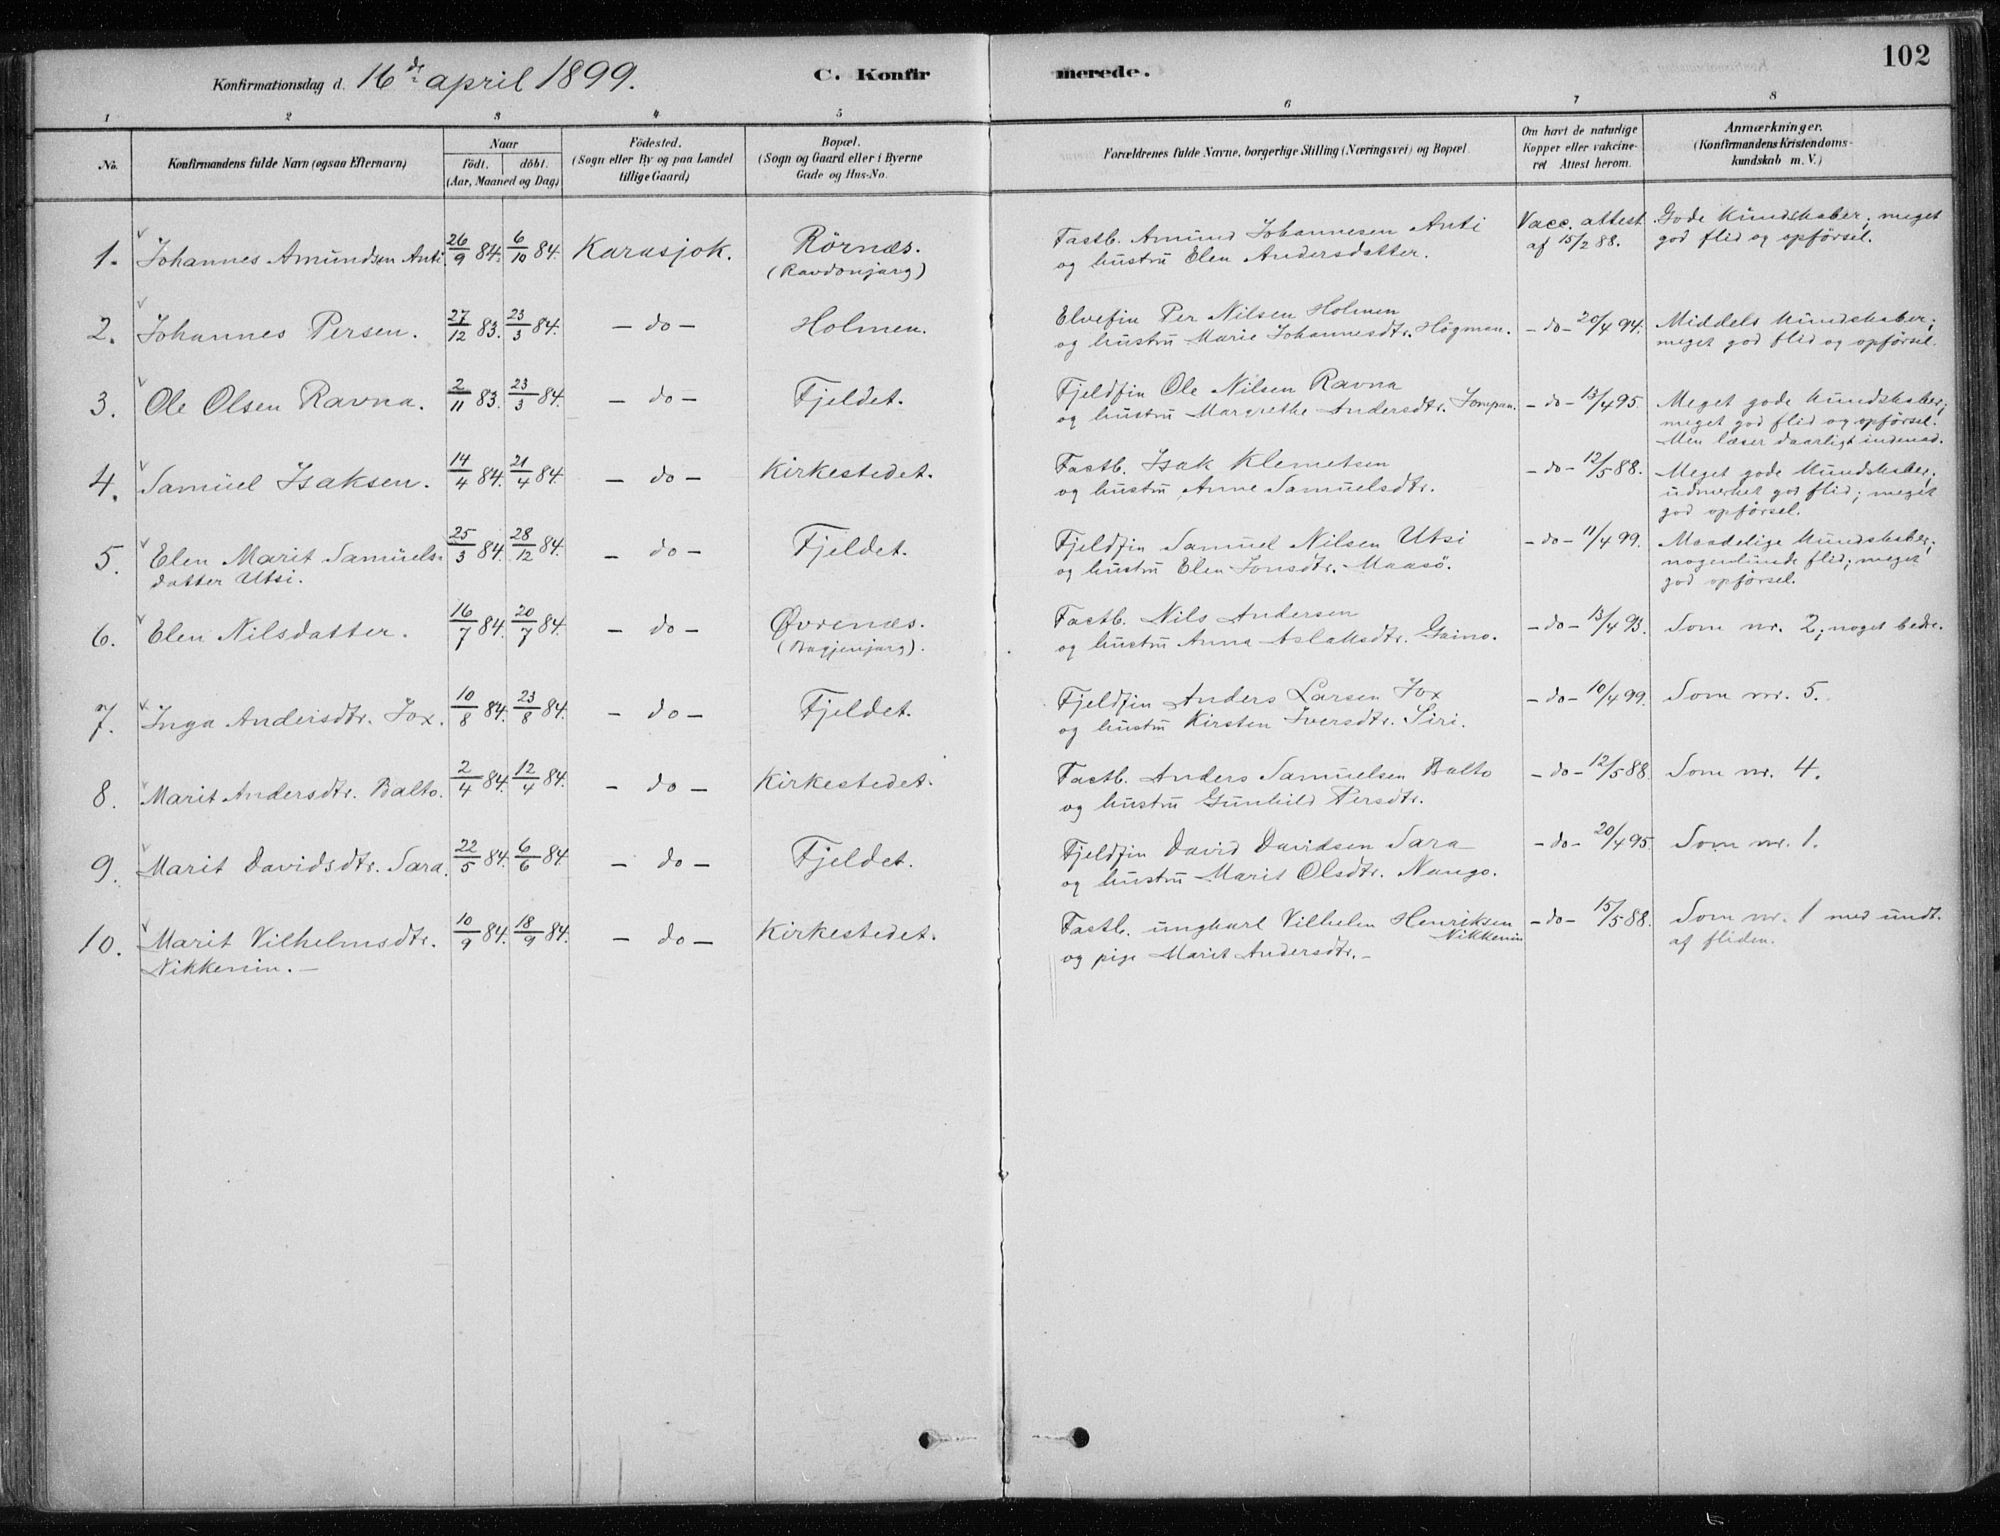 102
Konfirmationsdag d. 16de april 1899. C. Konfirmerede.
1 2 3 4 5 6 7 8
No. Konfirmandens fulde Navn (ogsaa Efternavn) Naar Födt. döbt. (Aar, Maaned og Dag) Födested. (Sogn eller By og paa Landet tillige Gaard) Bopæl. (Sogn og Gaard eller i Byerne Gade og Hus-No. Forældrenes fulde Navne, borgerlige Stilling (Næringsvei) og Bopæl. Om havt de naturlige Kopper eller vakcineret Attest herom. Anmærkninger. (Konfirmandens Kristendomskundskab m. V.)
1. Johannes Amundsen Anti 26/9 84. 6/10 84. Karasjok. Rörnæs. (Ravdonjarg) Fastb. Amund Johannesen Anti Vacc. attest Gode kundskaber; meget
og hustru Elen Andersdatter. af 15/2 88. god flid og opførsel.
2. Johannes Persen. 27/12 83. 23/3 84. - do - Holmen. Elvefin Per Nilsen Holmen - do - 20/4 94. Middels kundskaber;
og hustru Marie Johannesdtr. Högman. meget god flid og opførsel.
3. Ole Olsen Ravna. 2/11 83. 23/3 84. - do - Fjeldet. Fjeldfin Ole Nilsen Ravna - do - 13/4 95. Meget gode kundskaber;
og hustru Margrethe Andersdtr. Jompan. meget god flid og opførsel.
Men læser daarligt indenad.
4. Samuel Isaksen. 14/4 84. 21/4 84. - do - Kirkestedet. Fastb. Isak Klemetsen - do - 12/5 88. Meget gode kundskaber;
og hustru Anne Samuelsdtr. udmerket god flid; meget
god opførsel.
5. Elen Marit Samuels- 25/3 84. 28/12 84. - do - Fjeldet. Fjeldfin Samuel Nilsen Utsi - do - 11/4 99. Maadelige kundskaber;
datter Utsi. og hustru Elen Jonsdtr. Maasö. nogenlunde flid; meget
god opførsel.
6. Elen Nilsdatter. 16/7 84. 20/7 84. - do - Øvrenæs. (Bagjenjarg). Fastb. Nils Andersen - do - 13/4 93. Som nr. 2; noget bedre.
og hustru Anna Aslaksdtr. Gaino.
7. Inga Andersdtr. Jox. 10/8 84. 23/8 84. - do - Fjeldet. Fjeldfin Anders Larsen Jox - do - 10/4 99. Som nr. 5.
og hustru Kirsten Iversdtr. Siri.
8. Marit Andersdtr. Balto. 2/4 84. 12/4 84. - do - Kirkestedet. Fastb. Anders Samuelsen Balto - do - 12/5 88. Som nr. 4.
og hustru Gunhild Persdtr.
9. Marit Davidsdtr. Sara. 22/5 84. 6/6 84 - do - Fjeldet. Fjeldfin David Davidsen Sara - do - 20/4 95. Som nr. 1.
og hustru Marit Olsdtr. Nango.
10. Marit Vilhelmsdtr. 10/9 84. 18/9 84. - do - Kirkestedet. Fastb. ungkarl Vilhelm Henriksen Nikkenin - do - 15/5 88. Som nr. 1 med undt.
Nikkenin. - og pige Marit Andersdtr. - af fliden.